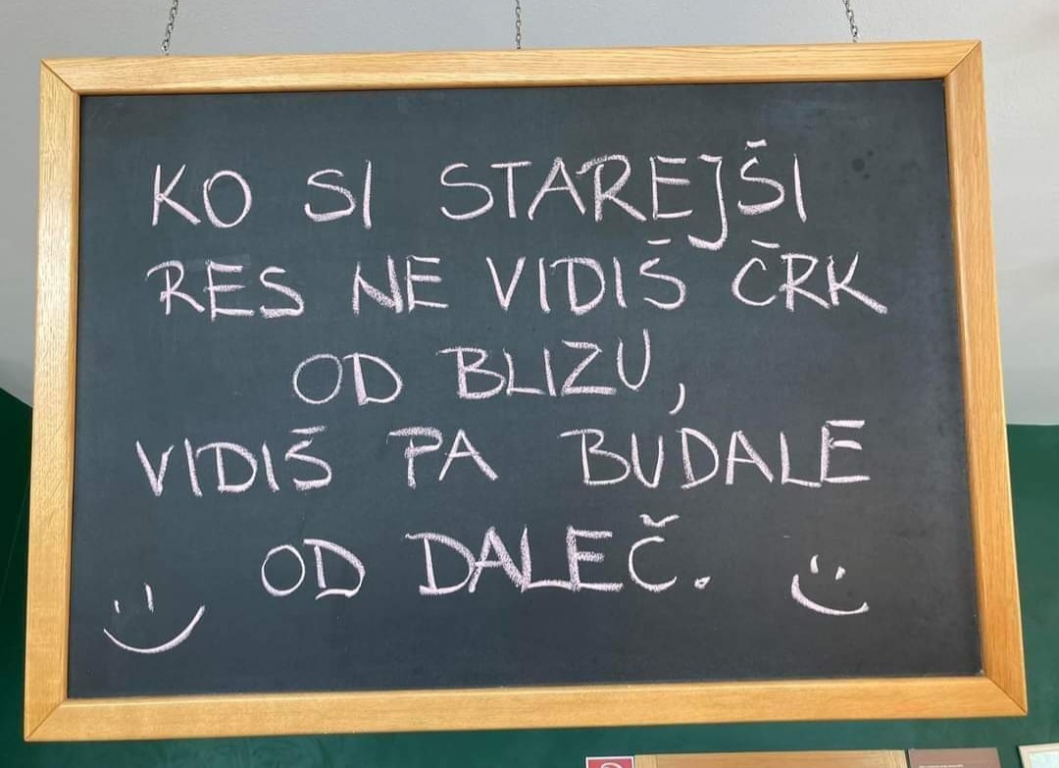 KO SI STAREJŠI
RES NE VIDIŠ ČRK
OD BLIZU,
VIDIŠ PA BUDALE
OD DALEČ.